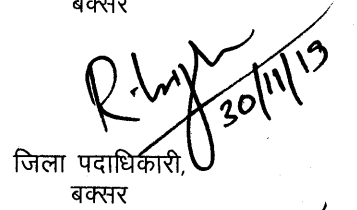 बक्सर
30/11/19
जिला पदाधिकारी,
बक्सर